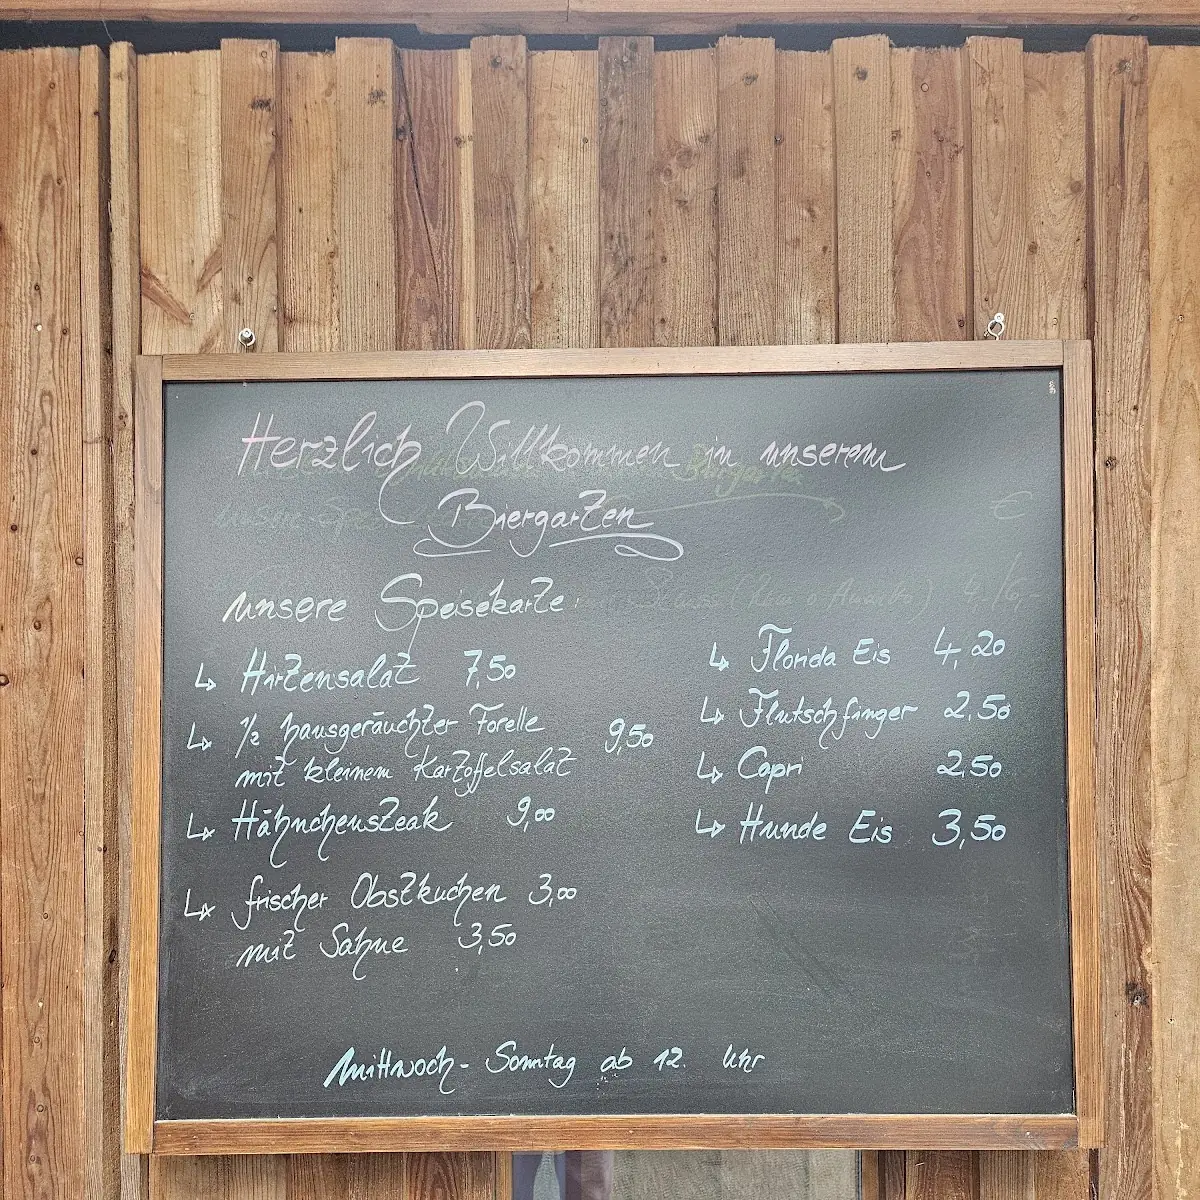 Herzlich Willkommen in unserem
Biergarten
unsere Speisekarte:
↳ Hirtensalat 7,50
↳ 1/2 hausgeräuchter Forelle
mit kleinem Kartoffelsalat 9,50
↳ Hähnchensteak 9,00
↳ frischer Obstkuchen 3,00
mit Sahne 3,50
↳ Florida Eis 4,20
↳ Flutschfinger 2,50
↳ Capri 2,50
↳ Hunde Eis 3,50
Mittwoch - Sonntag ab 12. Uhr